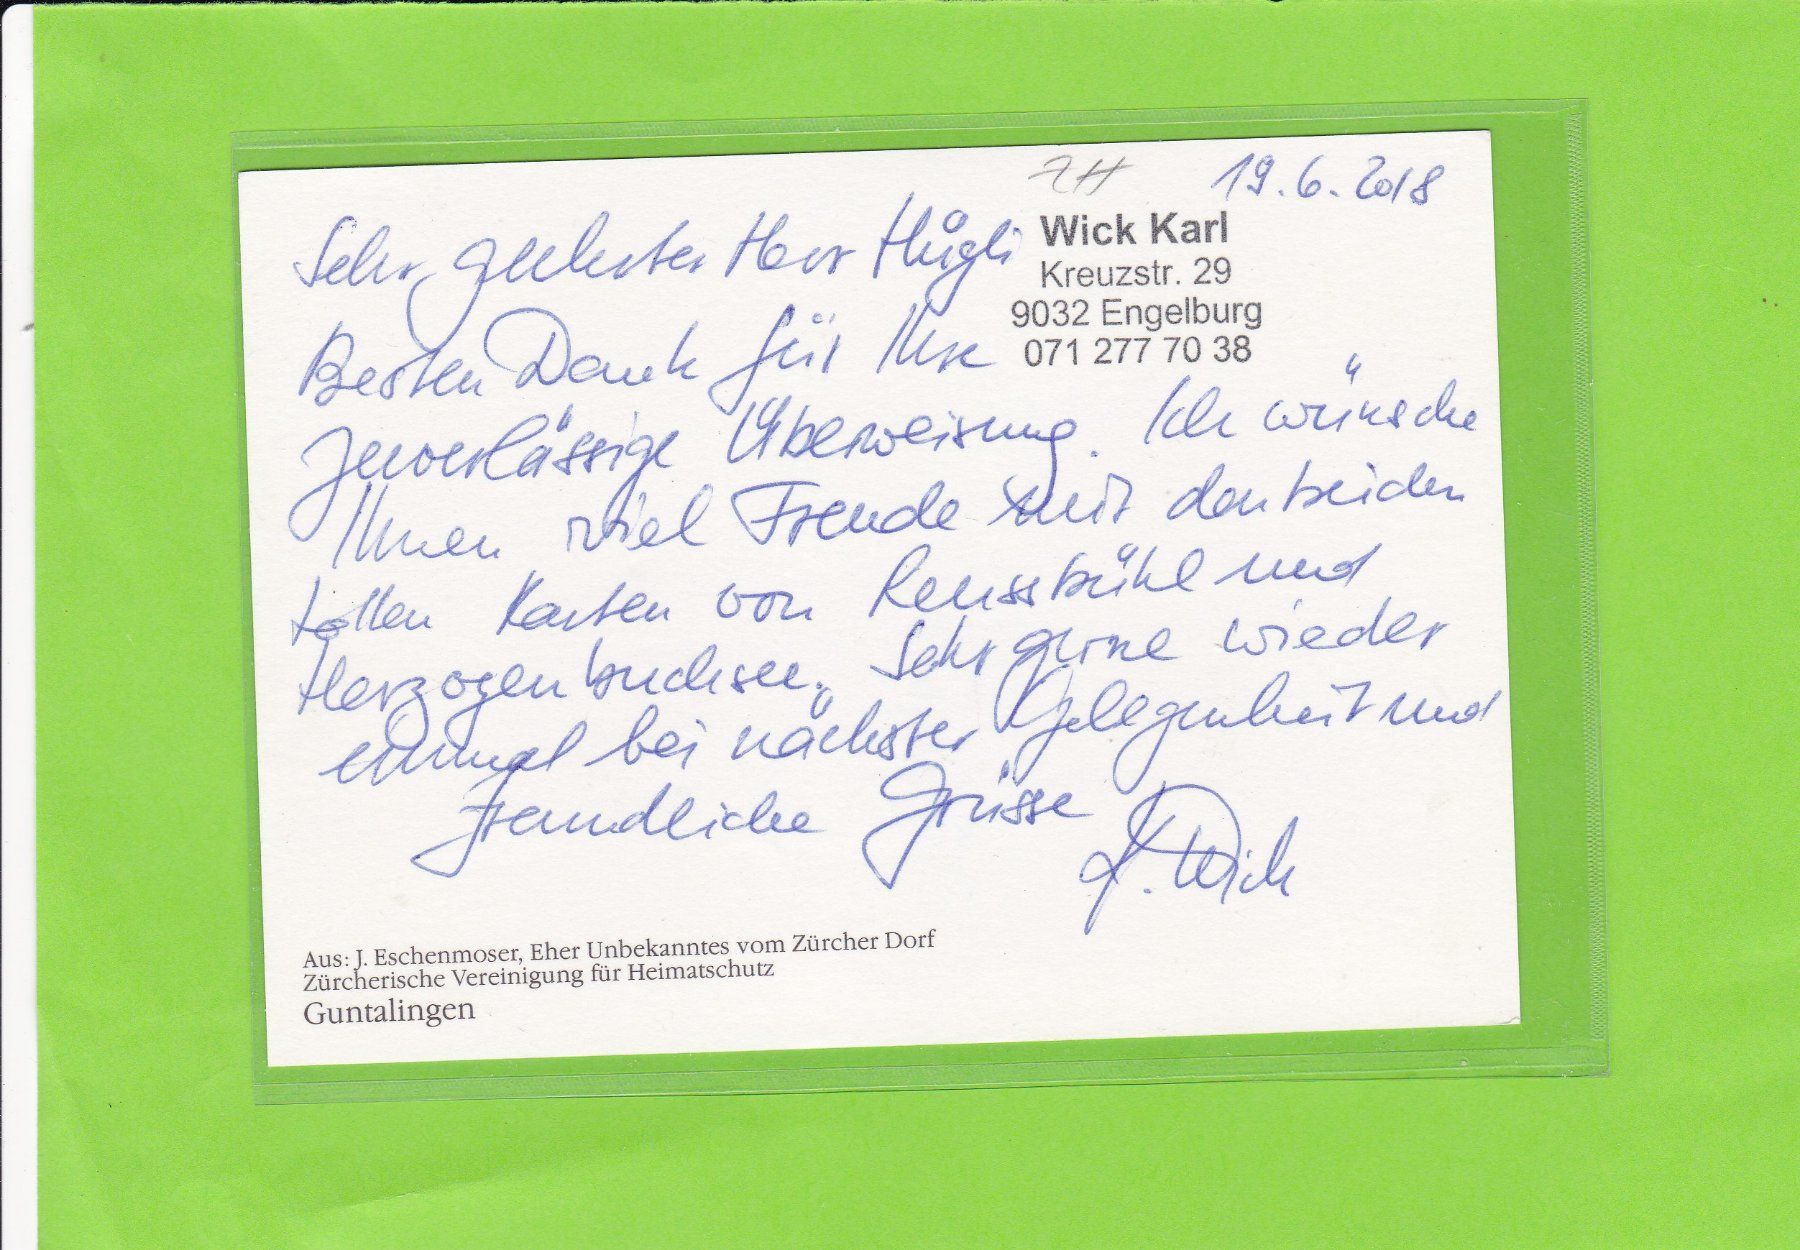 ZH 19.6.2018
Wick Karl
Kreuzstr. 29
9032 Engelburg
071 277 70 38
Sehr geehrter Herr Hügli
Besten Dank für Ihre
zuverlässige Überweisung. Ich wünsche
Ihnen viel Freude mit den beiden
tollen Karten von Reussbühl und
Herzogenbuchsee. Sehr gerne wieder
einmal bei nächster Gelegenheit und
freundliche Grüsse
K. Wick
Aus: J. Eschenmoser, Eher Unbekanntes vom Zürcher Dorf
Zürcherische Vereinigung für Heimatschutz
Guntalingen